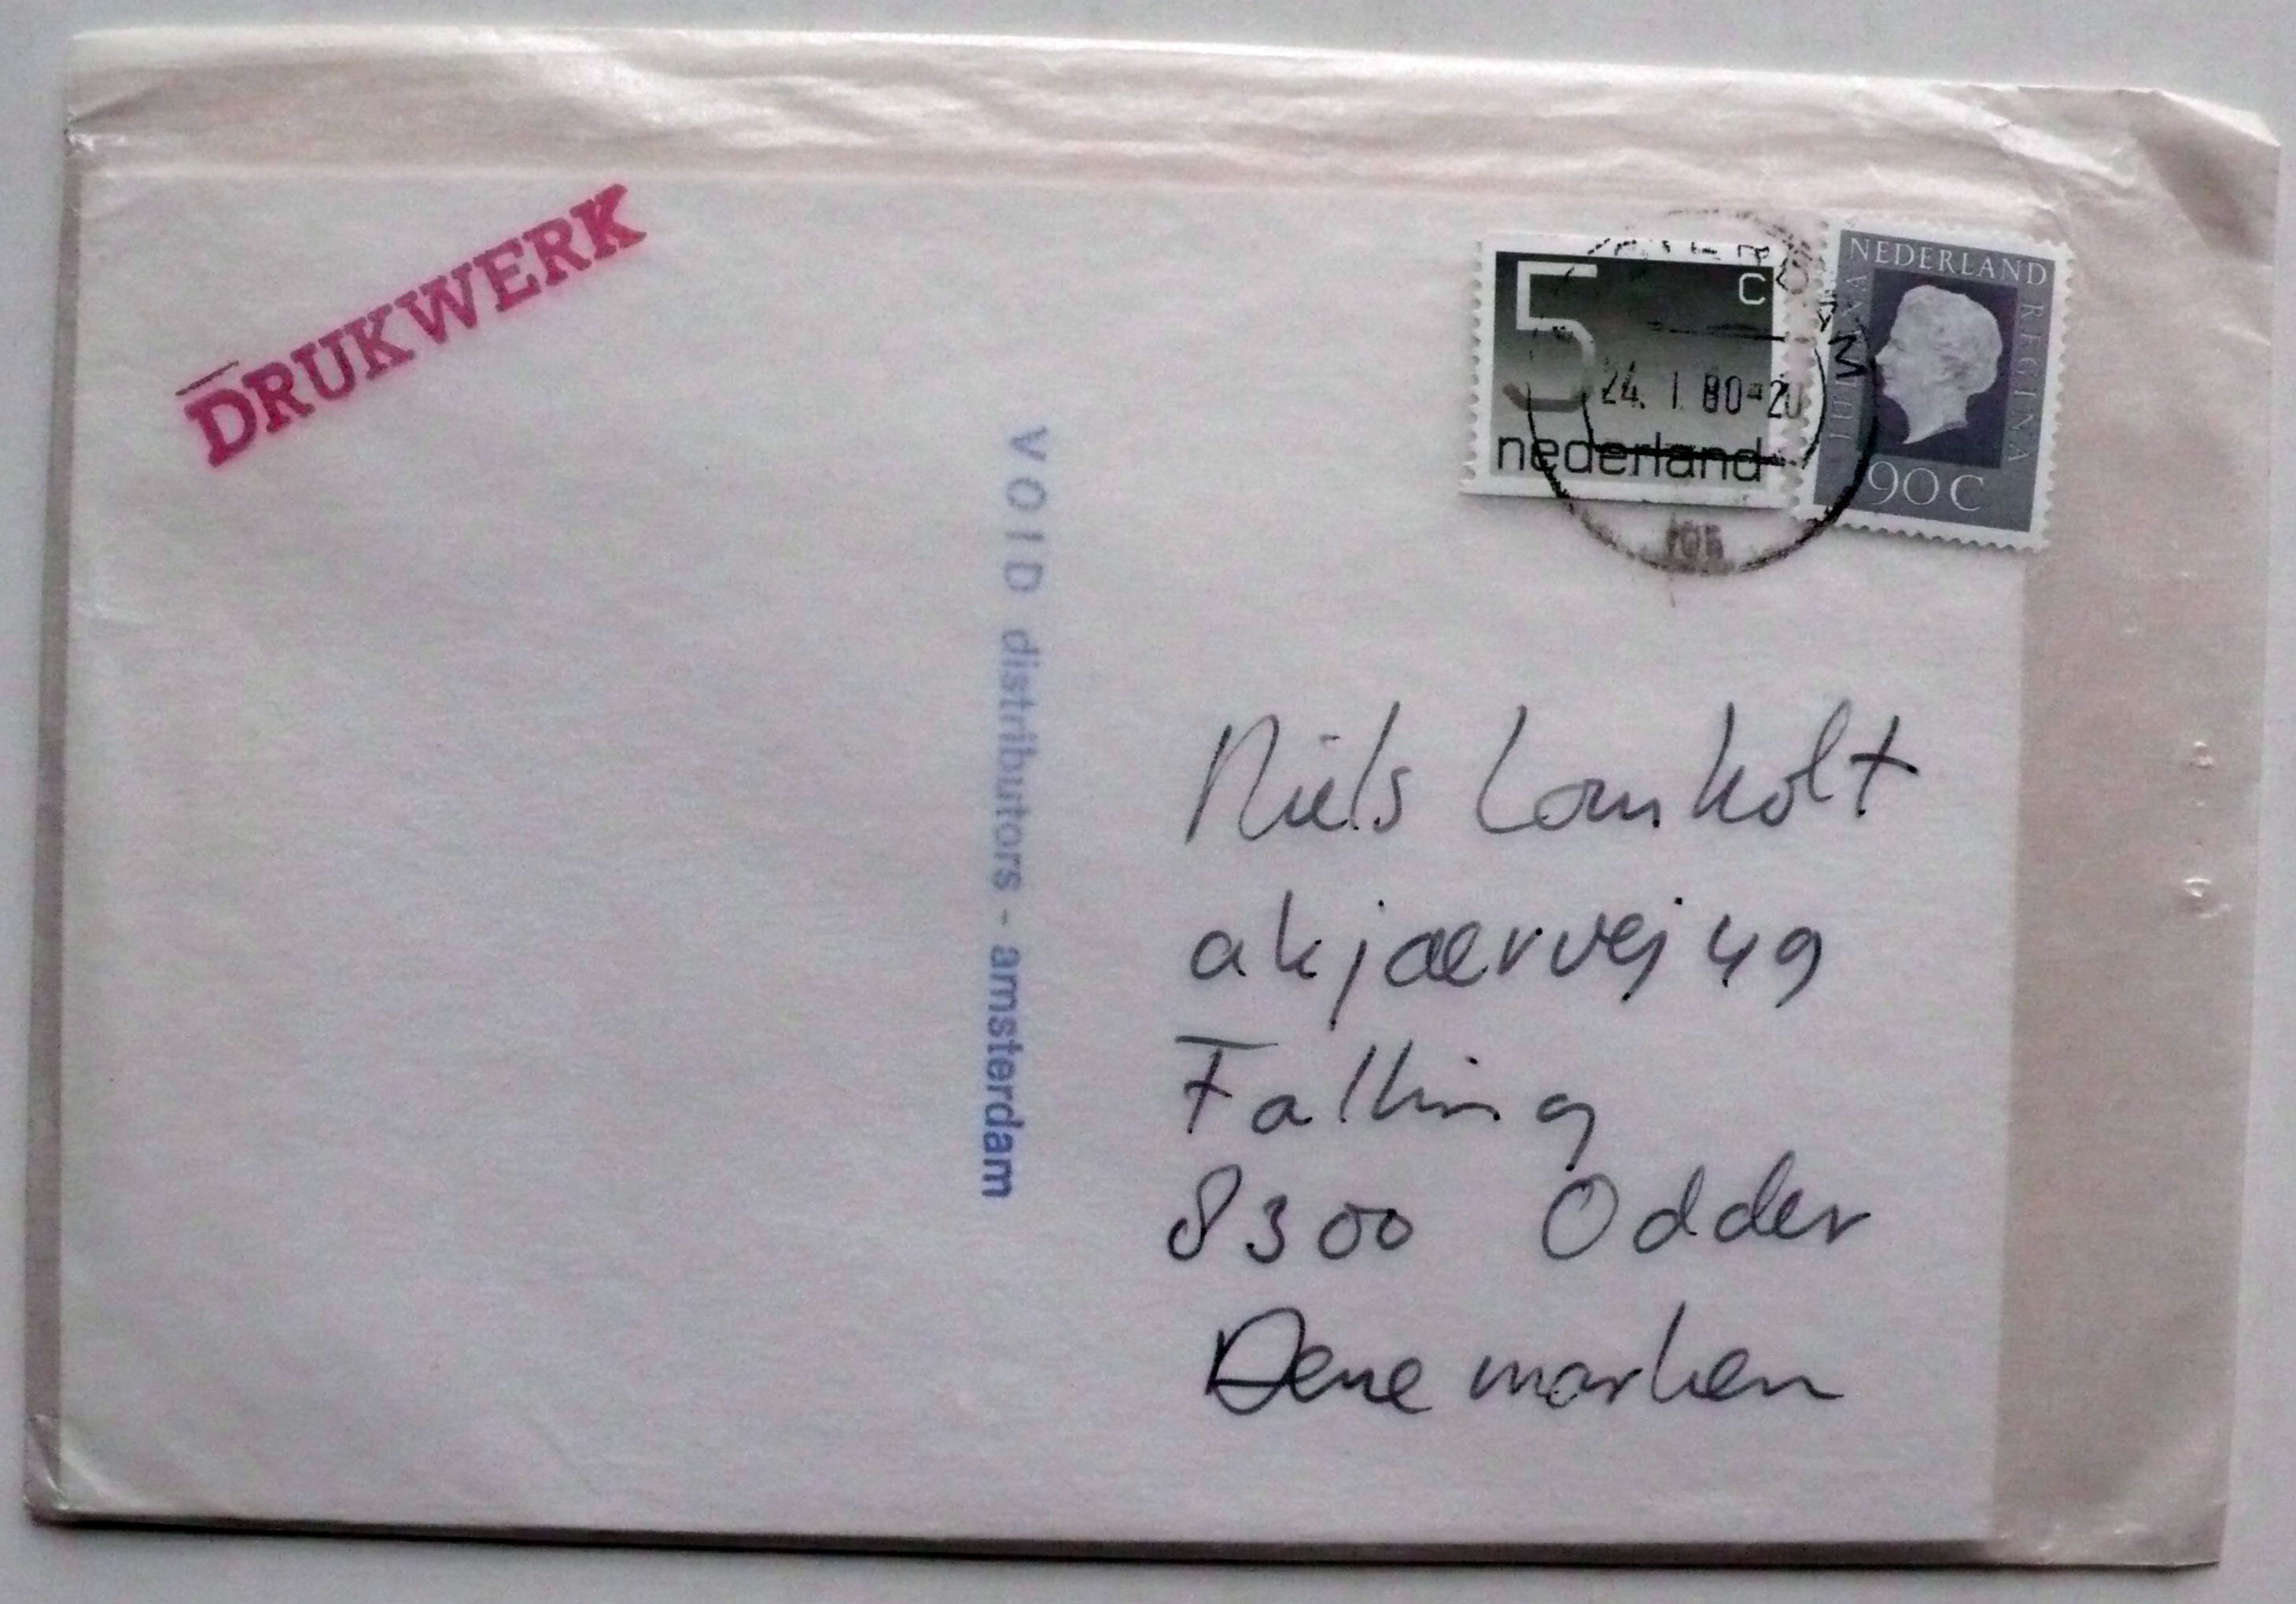 DRUKWERK
5 c
nederland
NEDERLAND
JULIANA REGINA
90 C
24. I. 80-20
VOID distributors - amsterdam
Niels Lomholt
akjaervej 49
Falling
8300 Odder
Denemarken